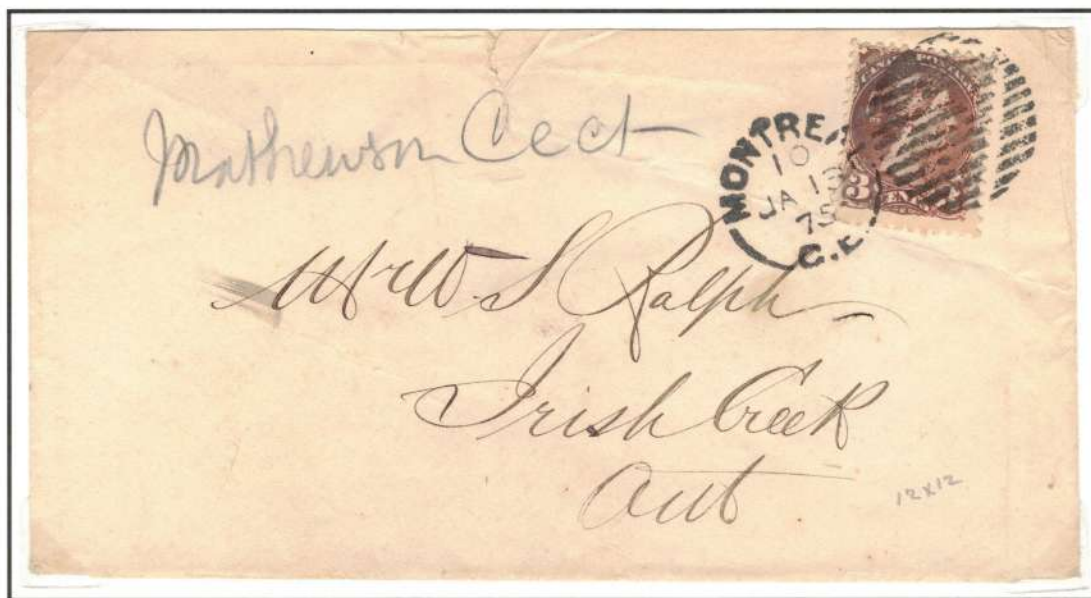 Mathewson Acct
MONTREA
10
JA 1
75
C.E.
3
CENTS
Mr W. S Ralph
Irish Creek
Ont
12x12